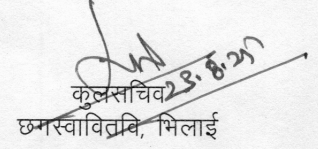 23.8.25
कुलसचिव
छगस्वावितवि, भिलाई